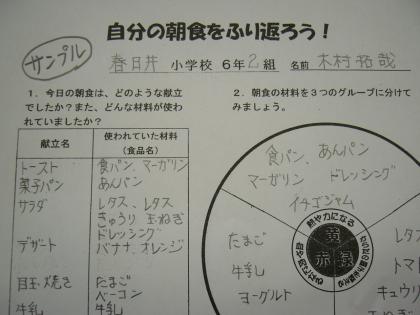 自分の朝食をふり返ろう！
サンプル
春日井 小学校 6年 2組 名前 木村拓哉
1．今日の朝食は、どのような献立
でしたか？また、どんな材料が使わ
れていましたか？
献立名 使われていた材料
（食品名）
トースト 食パン、マーガリン
菓子パン あんパン
サラダ レタス、レタス
きゅうり 玉ねぎ
ドレッシング
デザート バナナ、オレンジ
目玉焼き たまご
ベーコン
牛乳 牛乳
2．朝食の材料を3つのグループに分けて
みましょう。
食パン、あんパン
マーガリン ドレッシング
イチゴジャム
熱や力になる
黄
赤 緑
たまご
牛乳
ヨーグルト
レタ
トマト
キュウリ